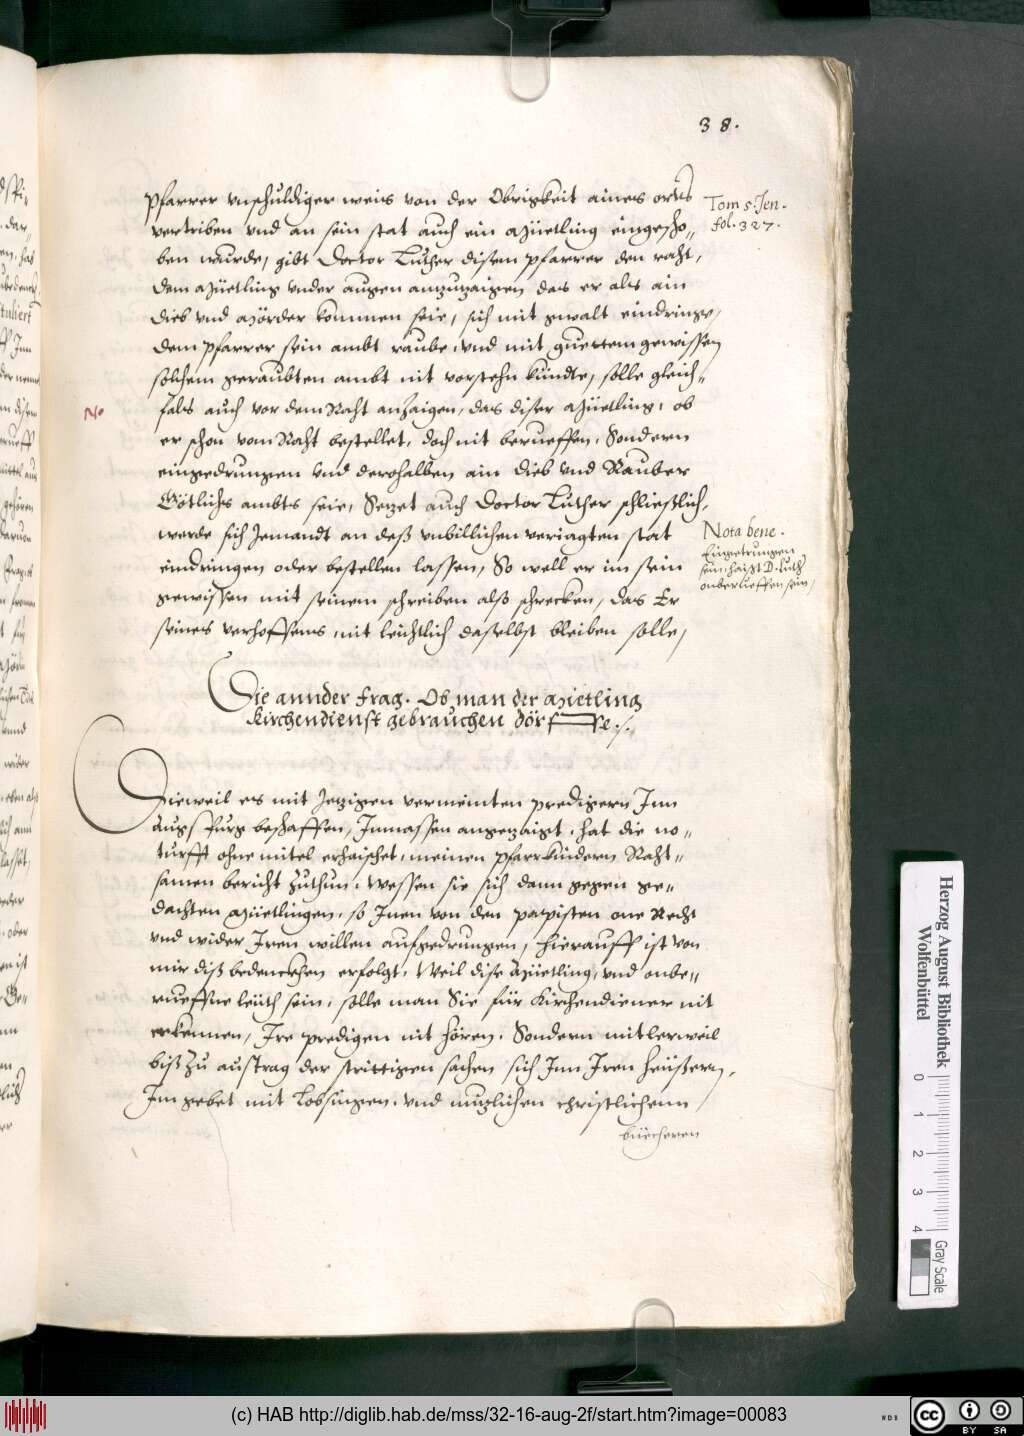 38.
pfarrer vnschuldiger weis von der Obrigkeit aines orts
vertriben vnd an sein stat auch ein Müetling eingescho„
ben wurde, gibt Doctor Luther disem pfarrer den raht,
dem Müetling vnder augen anzuzaigen das er als ain
dieb vnd Mörder kommen seie, sich mit gwalt eindringe,
dem pfarrer sein ambt raube, vnd mit guettem gewissen
solchem geraubten ambt nit vorstehn kündte, solle gleich„
fals auch vor dem Raht anzaigen, das diser Müetling, ob
er schon vom Raht bestellet, doch nit berueffen, Sondern
eingedrungen vnd derohalben ain dieb vnd Rauber
Götlichs ambts seie, Setzet auch Doctor Luther schließlich,
werde sich Jemandt an deß vnbillichen veriagten stat
eindringen oder bestellen lassen, So well er im sein
gewissen mit seinem schreiben alß schrecken, das Er
seines verhoffens, nit leichtlich daselbst bleiben solle,
Tom 5. Jen.
fol. 327.
No
Nota bene.
Eingetrungen
sein, haißt D. Luth
onberueffen sein,
Die annder frag. Ob man der Mietling
kirchendienst gebrauchen dörffe.
Dieweil es mit Jetzigen vermeinten predigern Jnn
Augspurg beschaffen, Jnmassen angezaigt, hat die no„
turfft ohne mitel erhaischet, meinen pfarrkindern Raht„
samen bericht zuthun, wessen sie sich dann gegen ge„
dachten Müetlingen, so Jnen von den papisten one Recht
vnd wider Jren willen aufgedrungen, Hierauff ist von
mir diß bedencken erfolgt, Weil dise Müetling, vnd onbe„
rueffne leüth sein, solle man Sie für Kirchendiener nit
erkennen, Jre predigen nit hören, Sondern mitlerweil
biß zu austrag der strittigen sachen sich Jnn Jren heüßern,
Jm gebet mit Lobsingen, vnd nutzlichen christlichenn
büecheren
Herzog August Bibliothek
Wolfenbüttel
0 1 2 3 4
Gray Scale
(c) HAB http://diglib.hab.de/mss/32-16-aug-2f/start.htm?image=00083
WDB
cc BY SA